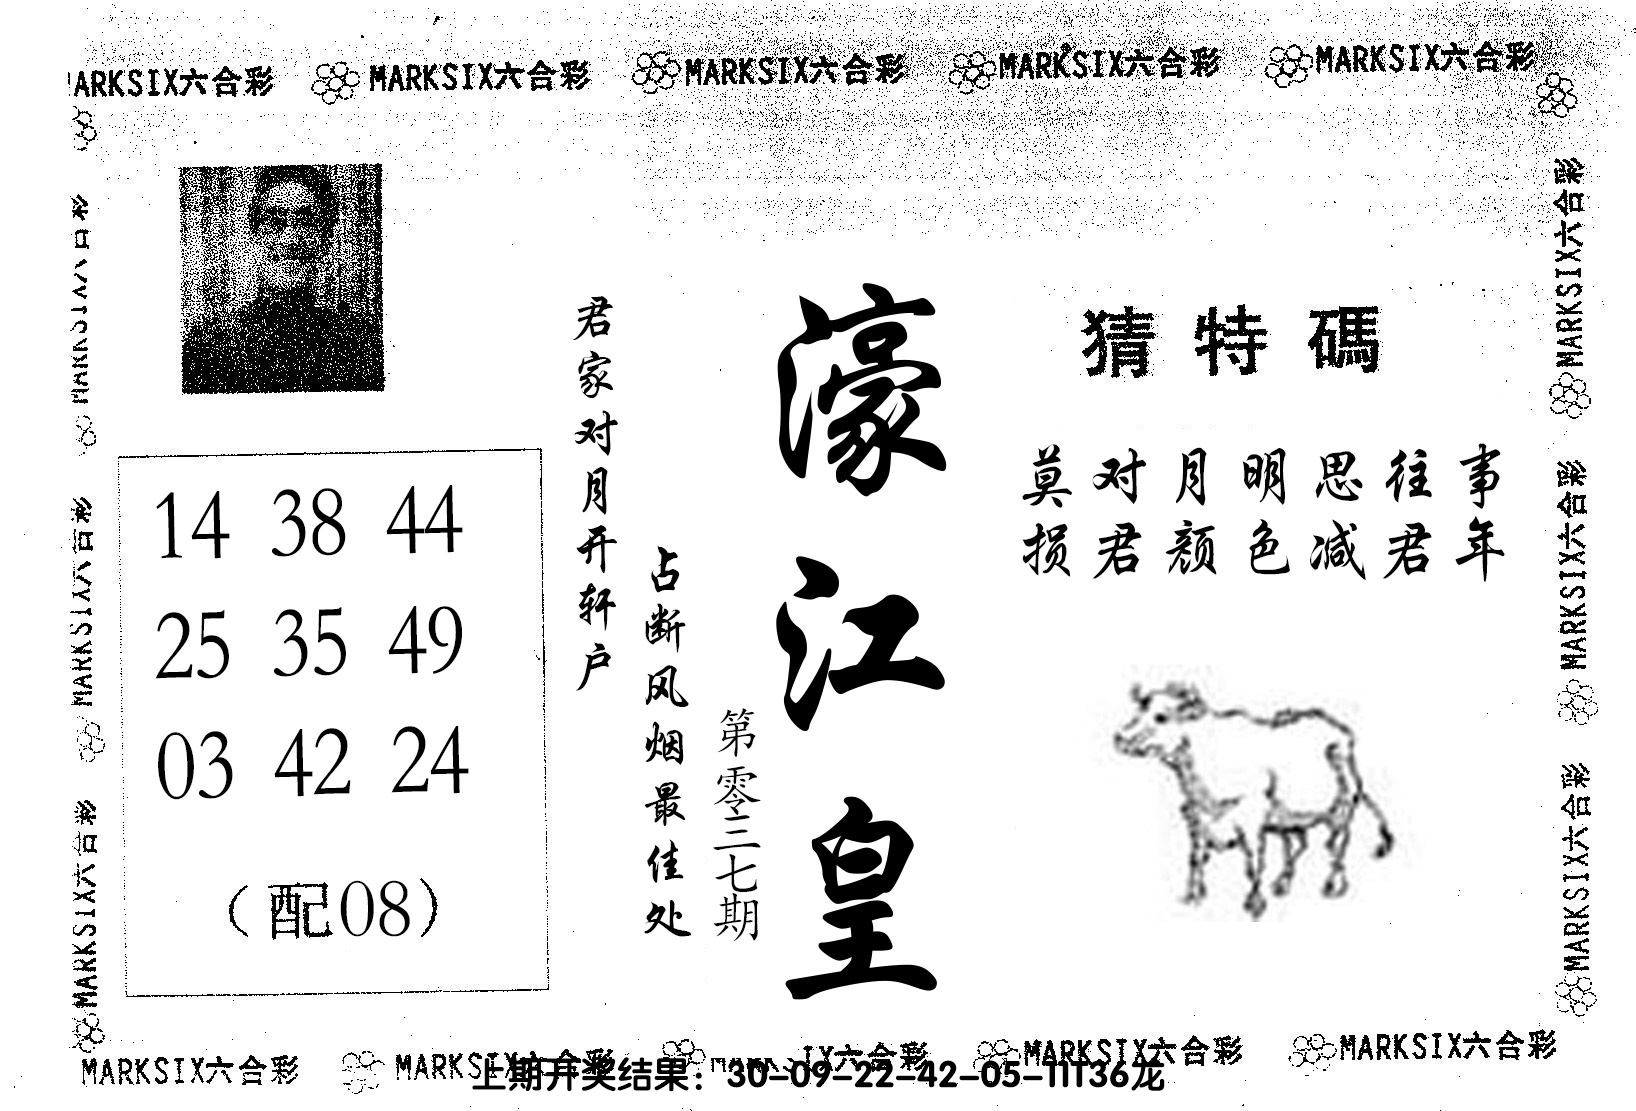 MARKSIX六合彩 MARKSIX六合彩 MARKSIX六合彩 MARKSIX六合彩 MARKSIX六合彩
MARKSIX六合彩
MARKSIX六合彩
MARKSIX六合彩
14 38 44
25 35 49
03 42 24
(配08)
君家对月开轩户
占断风烟最佳处
第零三七期
濠江皇
猜特碼
莫对月明思往事
损君颜色减君年
MARKSIX六合彩
MARKSIX六合彩
MARKSIX六合彩
MARKSIX六合彩 MARKSIX六合彩 MARKSIX六合彩 MARKSIX六合彩 MARKSIX六合彩
上期开奖结果：30-09-22-42-05-11T36龙